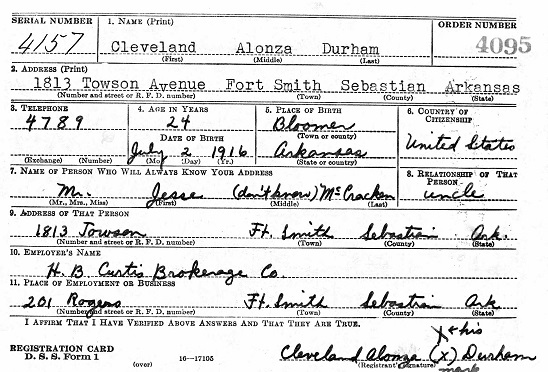 SERIAL NUMBER 1. NAME (Print) ORDER NUMBER
4157 Cleveland Alonza Durham 4095
(First) (Middle) (Last)
2. ADDRESS (Print)
1813 Towson Avenue Fort Smith Sebastian Arkansas
(Number and street or R. F. D. number) (Town) (County) (State)
3. TELEPHONE 4. AGE IN YEARS 5. PLACE OF BIRTH 6. COUNTRY OF CITIZENSHIP
4789 24 Bloomer United States
(Town or county)
DATE OF BIRTH
July 2 1916 Arkansas
(Exchange) (Number) (Mo.) (Day) (Yr.) (State or country)
7. NAME OF PERSON WHO WILL ALWAYS KNOW YOUR ADDRESS 8. RELATIONSHIP OF THAT PERSON
Mr. Jesse (don't know) McCracken uncle
(Mr., Mrs., Miss) (First) (Middle) (Last)
9. ADDRESS OF THAT PERSON
1813 Towson Ft. Smith Sebastian Ark.
(Number and street or R. F. D. number) (Town) (County) (State)
10. EMPLOYER'S NAME
H. B. Curtis Brokerage Co.
11. PLACE OF EMPLOYMENT OR BUSINESS
201 Rogers Ft. Smith Sebastian Ark
(Number and street or R. F. D. number) (Town) (County) (State)
I AFFIRM THAT I HAVE VERIFIED ABOVE ANSWERS AND THAT THEY ARE TRUE.
his
REGISTRATION CARD Cleveland Alonza (X) Durham
D. S. S. Form 1 (over) 16—17105 (Registrant's signature)
mark